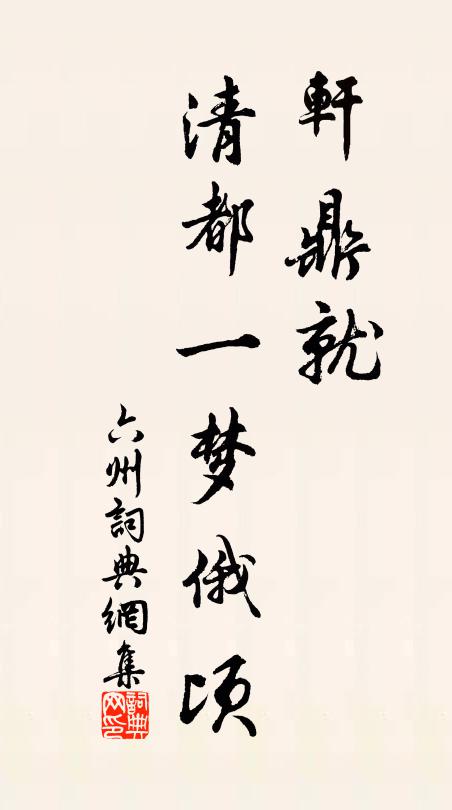 軒鼎就
清都一梦俄顷
六州詞典網集
詞典网印